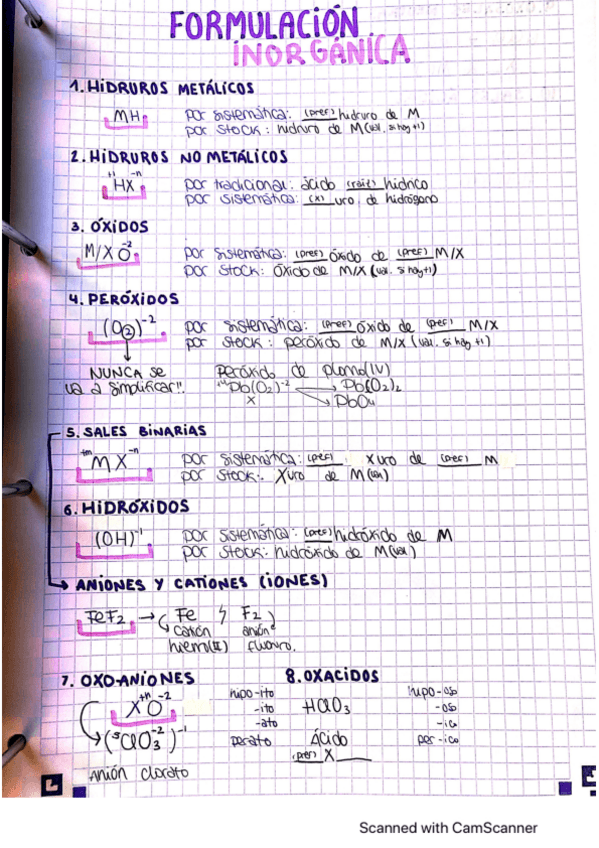 FORMULACIÓN
INORGÁNICA
1. HIDRUROS METÁLICOS
MH
por sistemática: (pref) hidruro de M
por stock: hidruro de M (val. si hay +1)
2. HIDRUROS NO METÁLICOS
+1 -n
HX
por tradicional: ácido (raíz) hídrico
por sistemática: (x) uro de hidrógeno
3. ÓXIDOS
M/X O-2
por sistemática: (pref) óxido de (pref) M/X
por stock: óxido de M/X (val. si hay +1)
4. PERÓXIDOS
(O2)-2
por sistemática: (pref) óxido de (pref) M/X
por stock: peróxido de M/X (val. si hay +1)
NUNCA se
va a simplificar!!
Peróxido de plomo (IV)
+4Pb(O2)-2 → Pb(O2)2
X → PbO4
5. SALES BINARIAS
+m -n
MX
por sistemática: (pref) Xuro de (pref) M
por stock: Xuro de M (val)
6. HIDRÓXIDOS
(OH)-1
por sistemática: (pref) hidróxido de M
por stock: hidróxido de M (val)
ANIONES Y CATIONES (IONES)
FeF2 → Fe y F2
catión anión
hierro (II) fluoruro.
7. OXO-ANIONES
+n -2
XO
(+5ClO3-2)-1
Anión clorato
hipo-ito
-ito
-ato
per-ato
8. OXÁCIDOS
HClO3
Ácido
(pref) X
hipo-oso
-oso
-ico
per-ico
Scanned with CamScanner